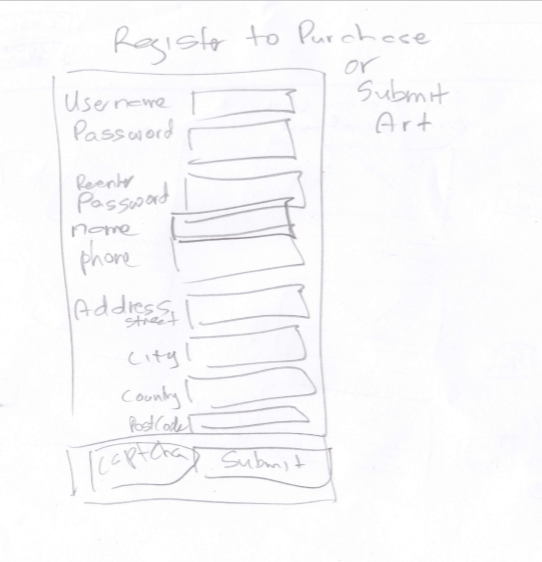 Register to Purchase
or
Submit
Art
Username
Password
Reenter
Password
name
phone
Address
street
City
County
PostCode
Captcha
Submit